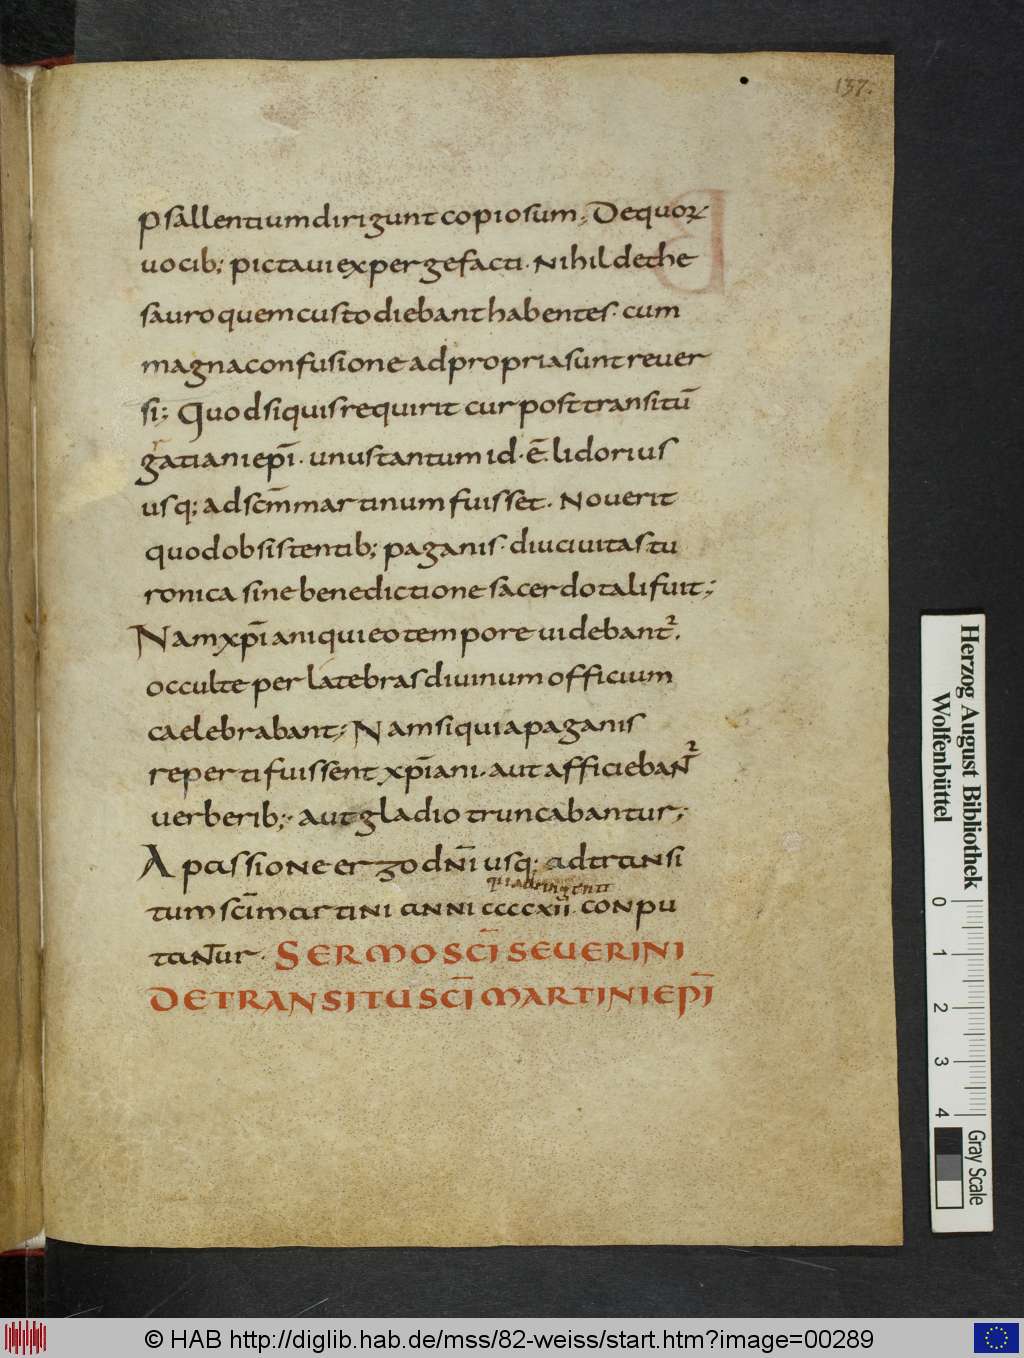 137.
psallentium dirigunt copiosum; De quoꝝ
uocib; pictaui expergefacti. Nihil dethe
sauro quem custodiebant habentes. cum
magna confusione ad propria sunt reuer
si; Quod si quis requirit cur post transitū
gatiani ep̄i. unus tantum id. ē. lidorius
usq; ad scm̄ martinum fuisset. Nouerit
quod obsistentib; paganis. diu ciuitas tu
ronica sine benedictione sacerdotali fuit;
Nam xp̄iani qui eo tempore uidebant᷑.
occulte per latebras diuinum officium
caelebrabant; Nam si qui a paganis
reperti fuissent xp̄iani. aut afficiebant᷑
uerberib;. aut gladio truncabantur;
A passione ergo dn̄i usq; ad transi
quadringenti
tum sc̄i martini anni ccccxii conpu
tantur. SERMO SC̄I SEUERINI
DE TRANSITU SC̄I MARTINI EP̄I
Herzog August Bibliothek
Wolfenbüttel
0 1 2 3 4
Gray Scale
© HAB http://diglib.hab.de/mss/82-weiss/start.htm?image=00289